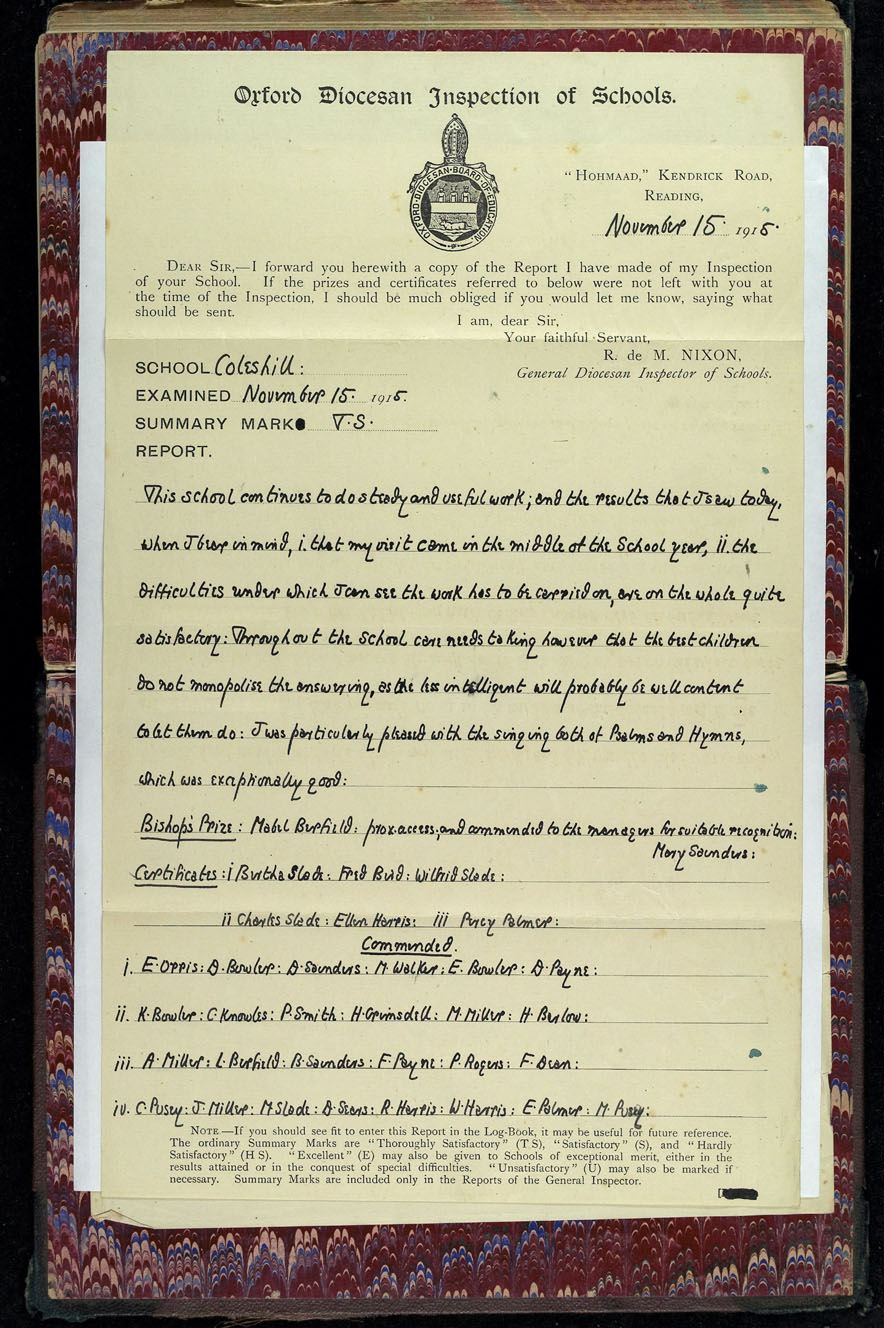 Oxford Diocesan Inspection of Schools.
OXFORD·DIOCESAN·BOARD·OF·EDUCATION
"HOHMAAD," KENDRICK ROAD,
READING,
November 15. 1915.
DEAR SIR,—I forward you herewith a copy of the Report I have made of my Inspection
of your School. If the prizes and certificates referred to below were not left with you at
the time of the Inspection, I should be much obliged if you would let me know, saying what
should be sent.
I am, dear Sir,
Your faithful Servant,
R. de M. NIXON,
General Diocesan Inspector of Schools.
SCHOOL Coleshill:
EXAMINED November 15. 1915.
SUMMARY MARK T.S.
REPORT.
This school continues to do steady and useful work; and the results that I saw today,
when I bear in mind, i. that my visit came in the middle of the School year, ii. the
difficulties under which I can see the work has to be carried on, are on the whole quite
satisfactory: Throughout the School care needs taking however that the best children
do not monopolise the answering, as the less intelligent will probably be well content
to let them do: I was particularly pleased with the singing both of Psalms and Hymns,
which was exceptionally good:
Bishop's Prize: Mabel Berfield: prox. access; and commended to the managers for suitable recognition:
Mary Saunders:
Certificates: i Bertha Slade: Fred Bird: Wilfrid Slade:
ii Charles Slade: Ellen Harris: iii Percy Palmer:
Commended.
i. E. Orris: D. Bowler: D. Saunders: M. Walker: E. Bowler: D. Payne:
ii. K. Bowler: C. Knowles: P. Smith: H. Grimsdell: M. Miller: H. Barlow:
iii. A. Miller: L. Berfield: B. Saunders: F. Payne: P. Rogers: F. Dean:
iv. C. Pusey: J. Miller: M. Slade: D. Sears: R. Harris: W. Harris: E. Palmer: M. Pusey:
NOTE.—If you should see fit to enter this Report in the Log-Book, it may be useful for future reference.
The ordinary Summary Marks are "Thoroughly Satisfactory" (T S), "Satisfactory" (S), and "Hardly
Satisfactory" (H S). "Excellent" (E) may also be given to Schools of exceptional merit, either in the
results attained or in the conquest of special difficulties. "Unsatisfactory" (U) may also be marked if
necessary. Summary Marks are included only in the Reports of the General Inspector.